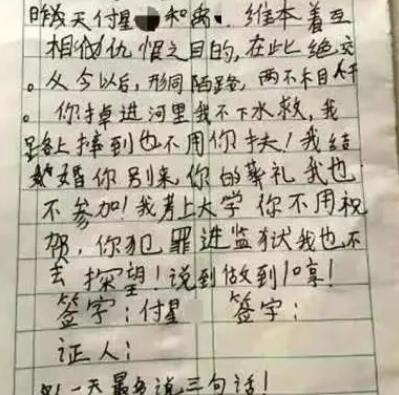 昨天付星 和 . 维本着互
相仇恨之目的,在此绝交
。从今以后,形同陌路,两不相干
。你掉进河里我不下水救,我
路上摔到也不用你扶!我结
婚你别来,你的葬礼我也
不参加!我考上大学你不用祝
贺,你犯罪进监狱我也不
去探望!说到做到!哼!
签字:付星 签字:
证人:
一天最多说三句话!